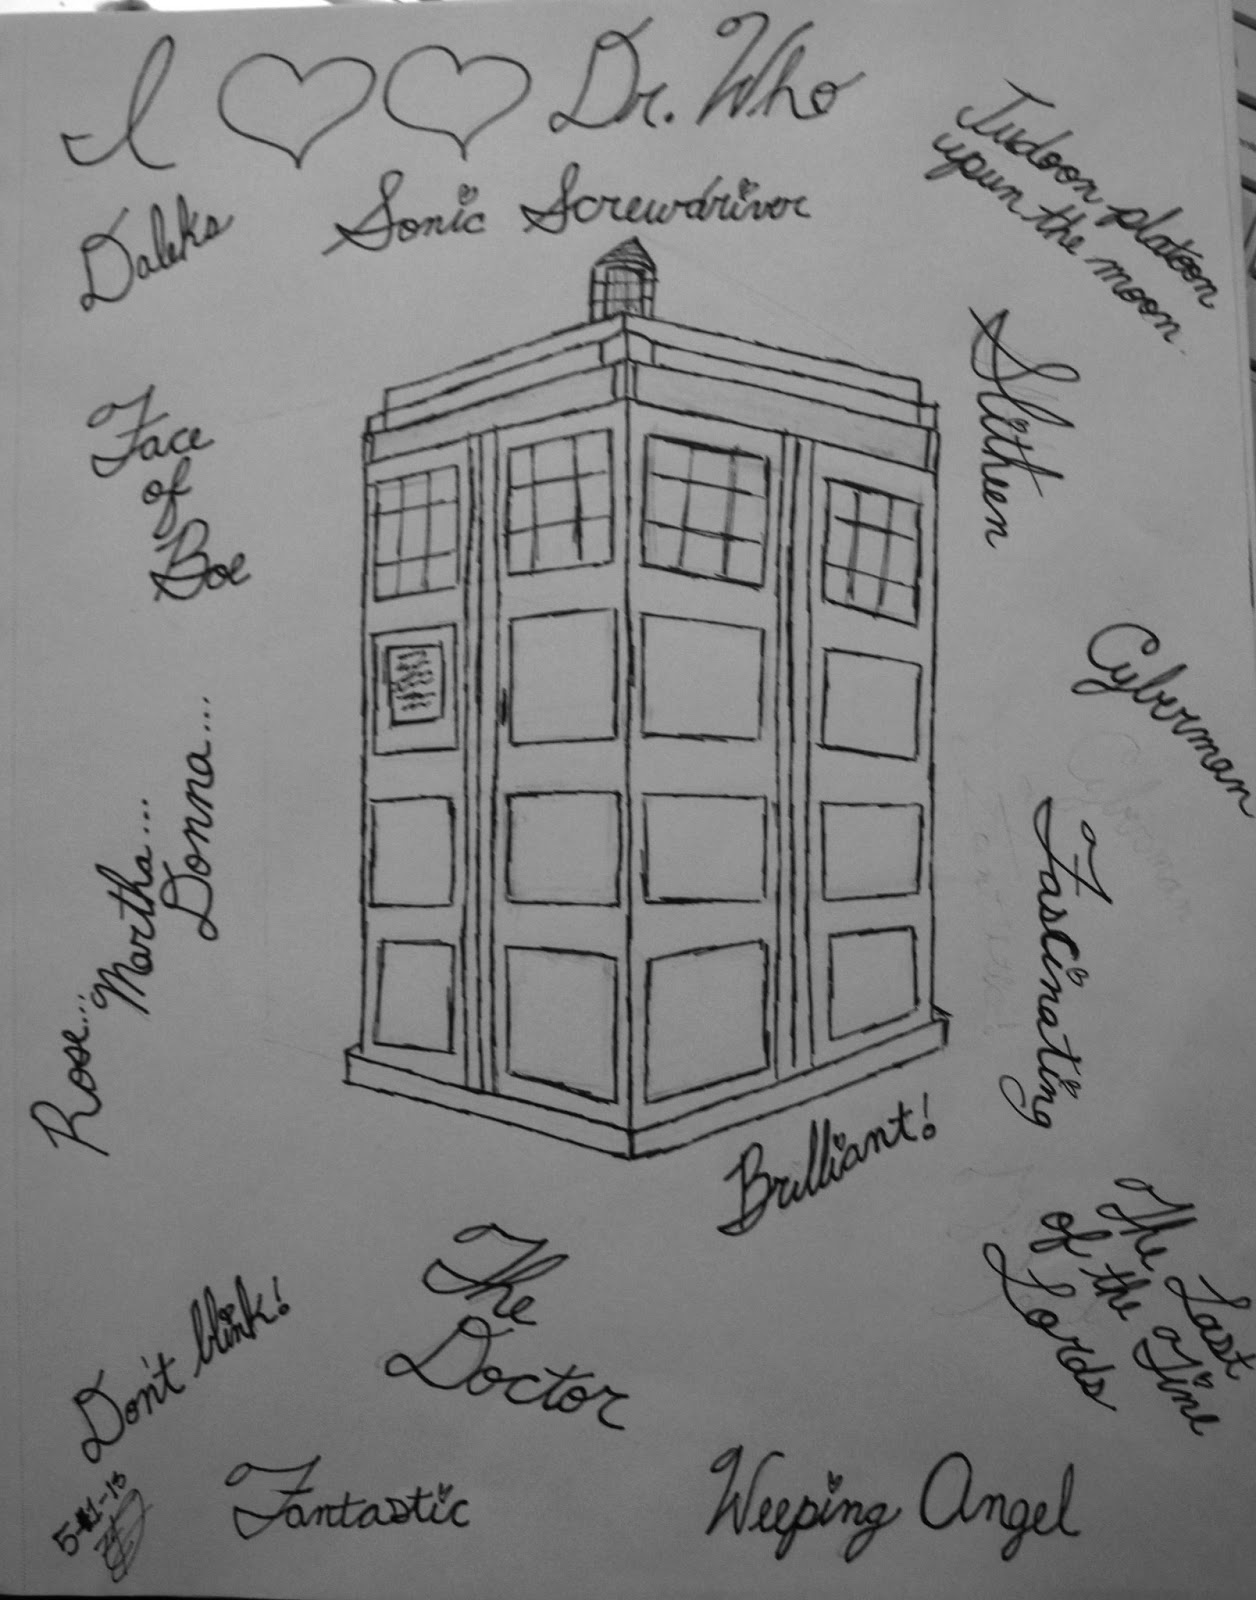 I Dr. Who
Sonic Screwdriver
Daleks
Judoon platoon
upun the moon.
Slitheen
Face
of
Boe
Cyberman
Rose...
Martha...
Donna....
Fascinating
Brilliant!
The Last
of the Time
Lords
The
Doctor
Don't blink!
Fantastic
Weeping Angel